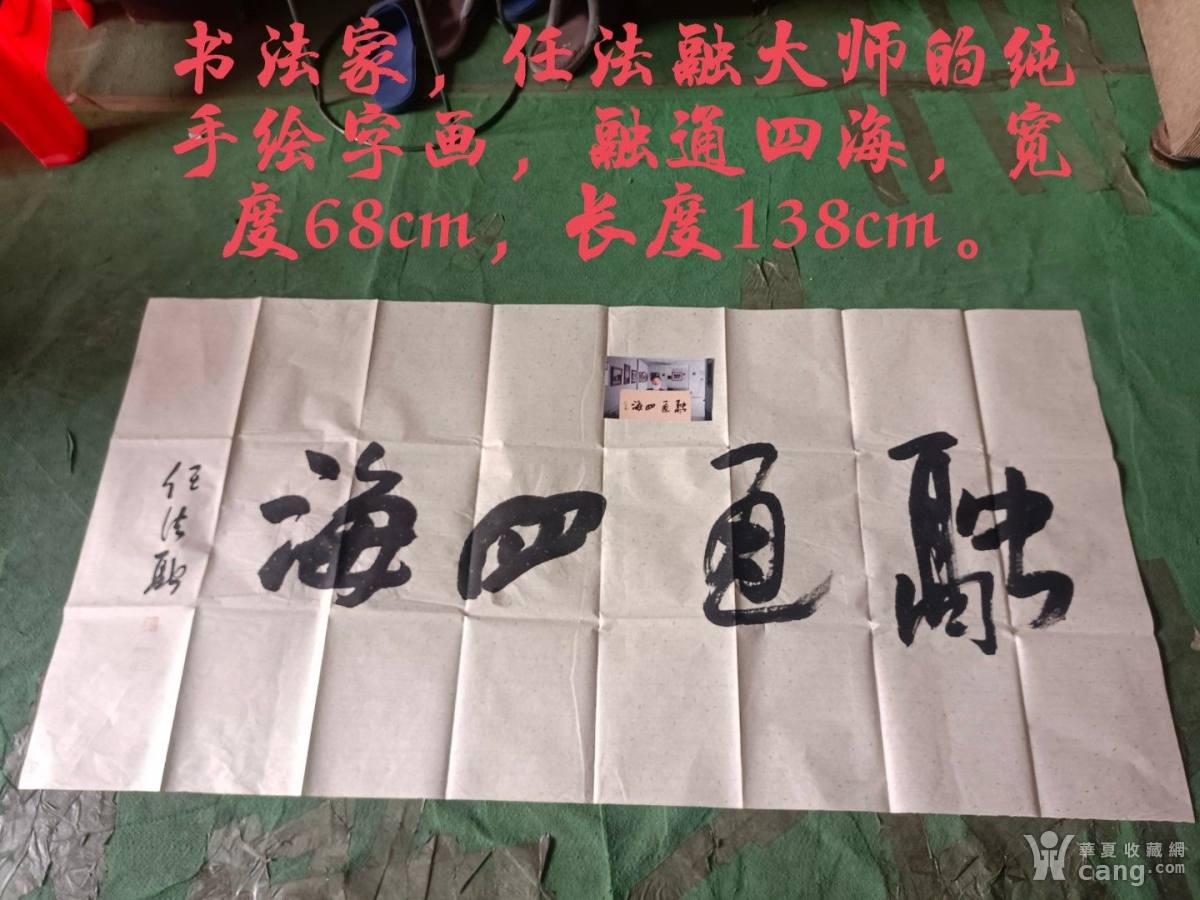 书法家，任法融大师的纯
手绘字画，融通四海，宽
度68cm，长度138cm。
融通四海
融通四海
任法融
華夏收藏網
cang.com